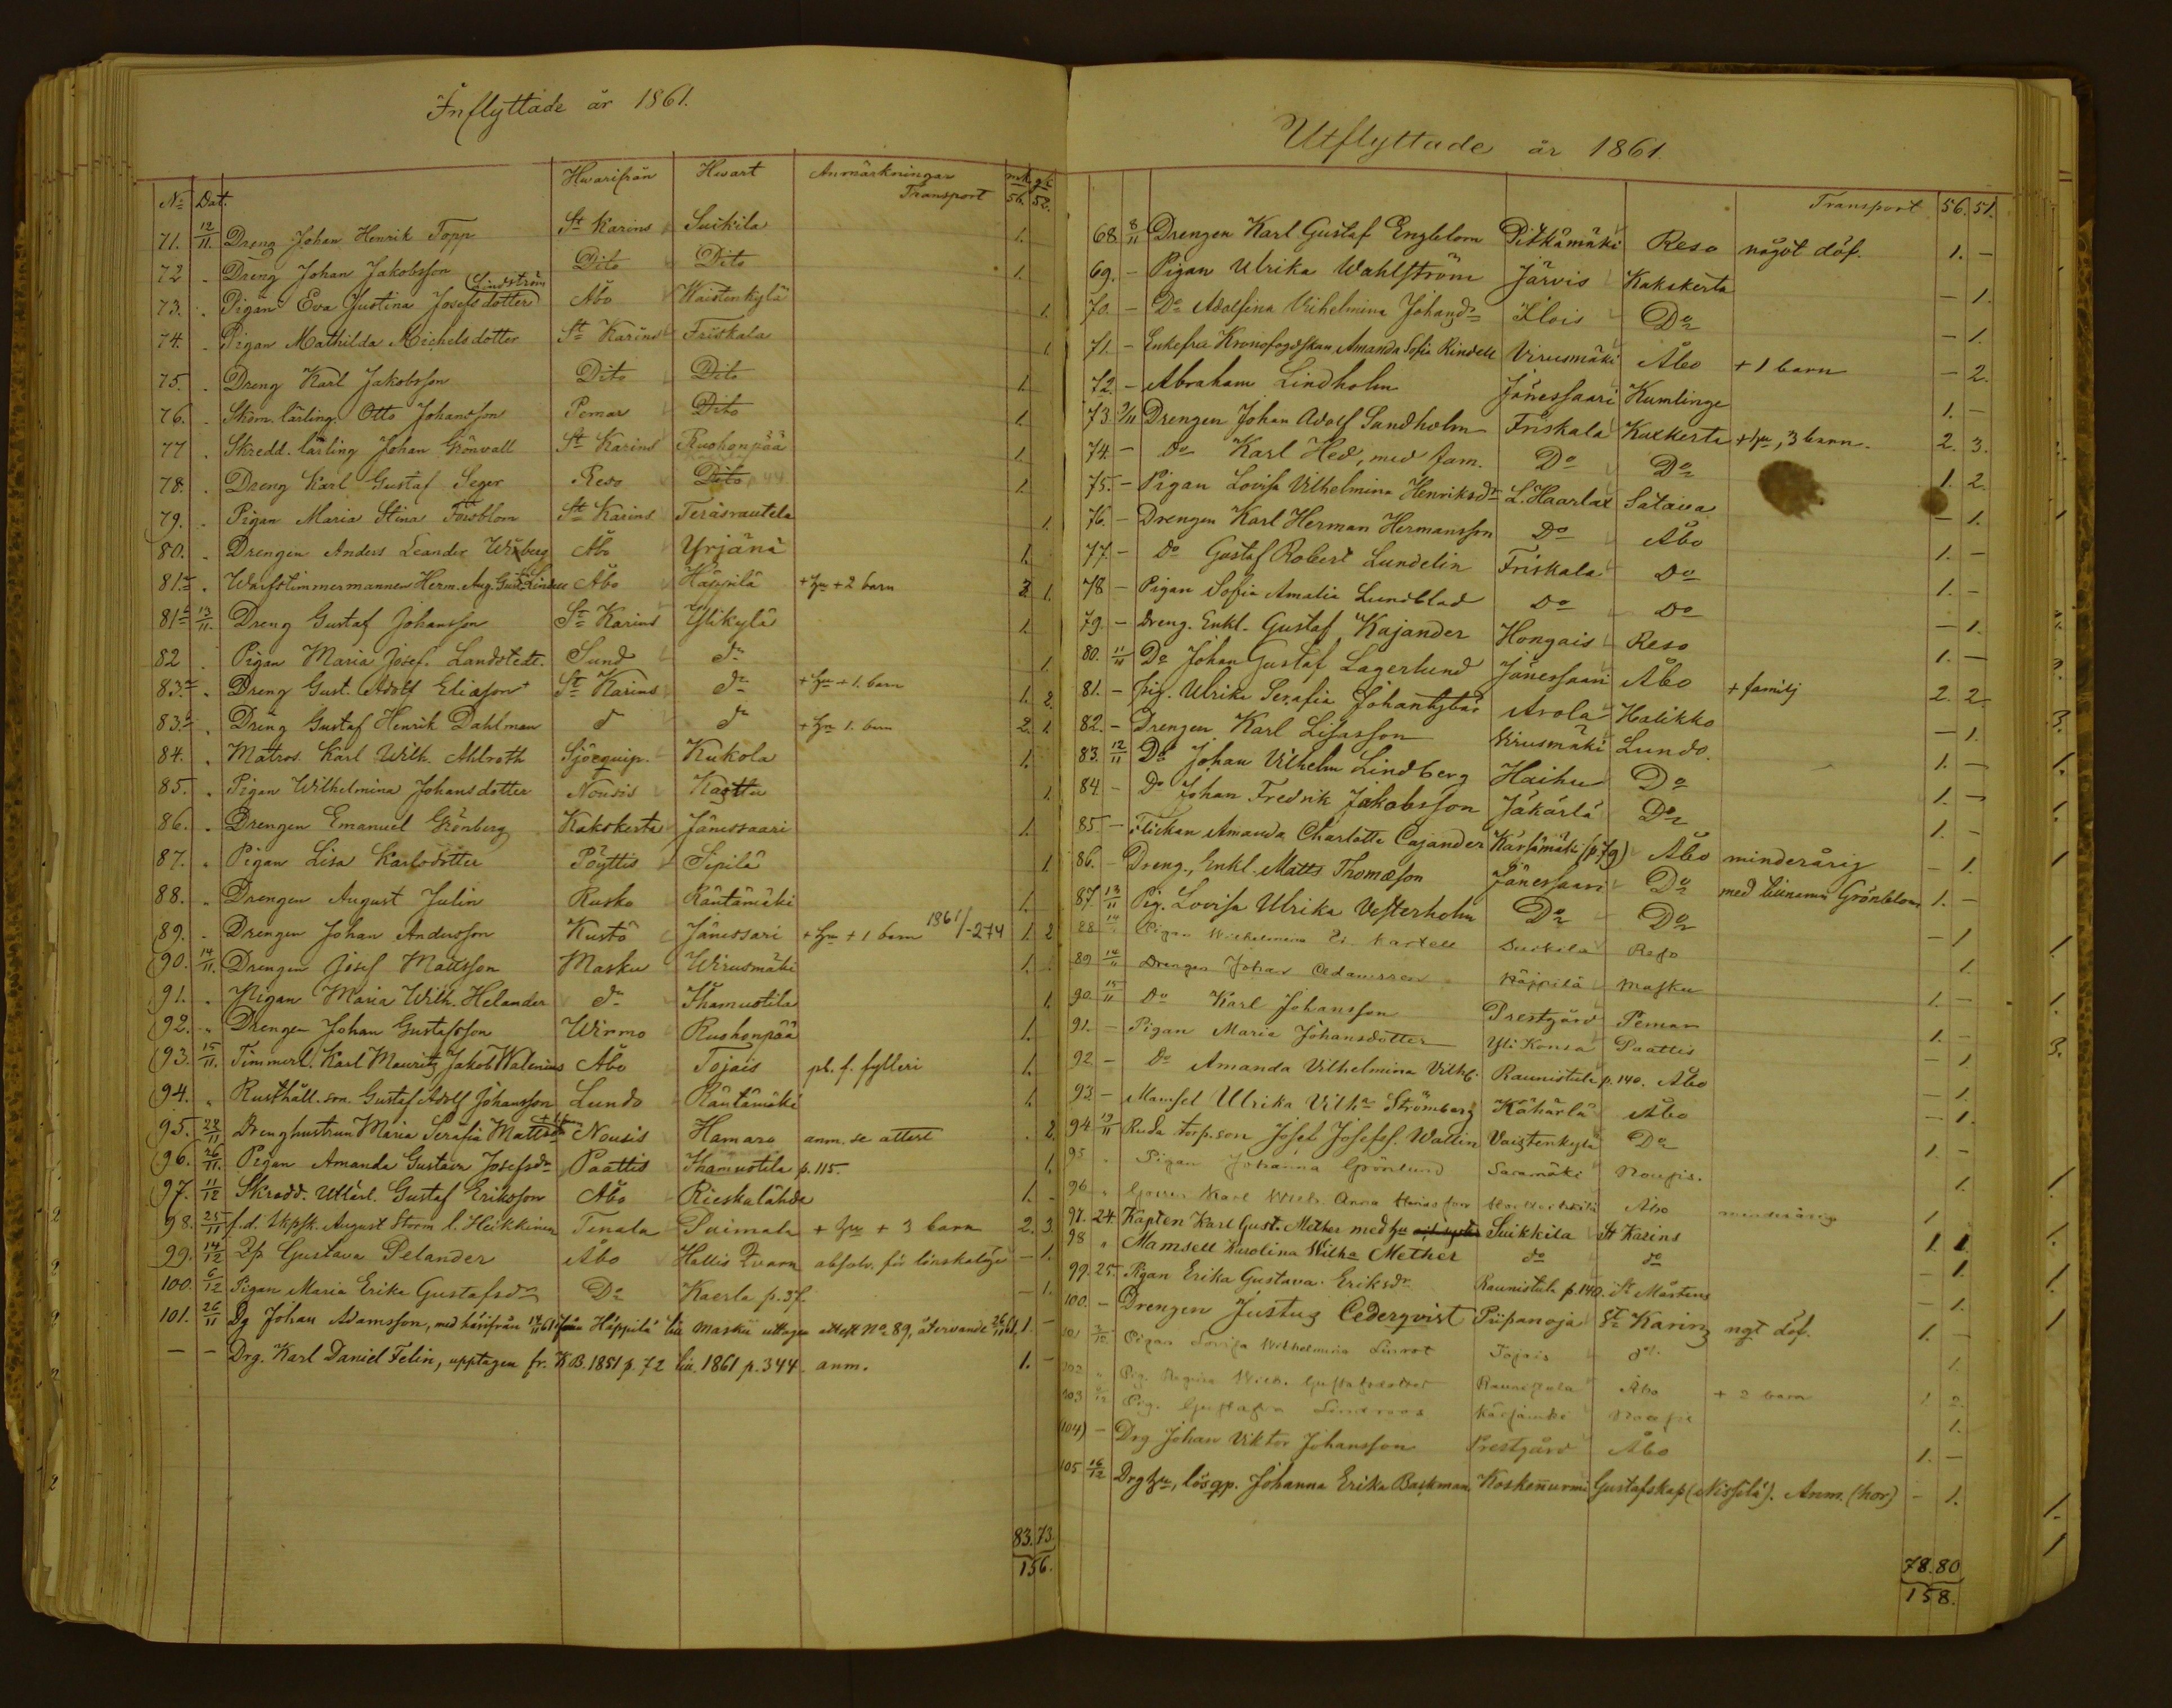 Inflyttade år 1861.
No Dat. Hwarifrån Hwart Anmärkningar mk. qk.
Transport 56. 52.
71. 12/11 Dreng Johan Henrik Topp St Karins Suikila 1.
72 - Dreng Johan Jakobsson Dito Dito 1.
73. - Pigan Eva Justina Josefsdotter (Lindström) Åbo Waistenkylä 1.
74. - Pigan Mathilda Michelsdotter St Karins Friskala 1.
75. - Dreng Karl Jakobsson Dito Dito 1.
76. - Skom. lärling. Otto Johansson Pemar Dito 1.
77 . Skredd. lärling Johan Grönvall St Karins Ruohonpää 1.
78. . Dreng Karl Gustaf Seger Reso Dito 1.
79. . Pigan Maria Stina Forsblom St Karins Teräsrautela 1.
80. . Drengen Anders Leander Wiberg Åbo Yrjänä 1.
81.a . Warfstimmermannen Herm. Aug. Gust. Lindell Åbo Häppilä + hu + 2 barn 3 1.
81b 13/11. Dreng Gustaf Johansson St Karins Ylikylä 1.
82 . Pigan Maria Josef. Landstedt. Sund do 1.
83.a . Dreng Gust. Adolf Eliasson St Karins do + hu + 1. barn 1. 2.
83.b . Dreng Gustaf Henrik Dahlman d do + hu 1. barn 2. 1.
84. . Matros. Karl Wilh. Ahlroth Sjöequip. Kukola 1.
85. . Pigan Wilhelmina Johansdotter Nousis 1.
86. . Drengen Emanuel Grönberg Kakskerta Jänessaari 1.
87. . Pigan Lisa Karlsdotter Pöyttis Sipilä 1
88. . Drengen August Julin Rusko Räntämäki 1.
89. - Drengen Johan Andersson Kustö Jänissari + hu + 1 barn 1861/-274 1. 2
90. 14/11. Drengen Josef Mattsson Masku Wirusmäki 1.
91. . Pigan Maria Wilh. Helander do Ihamustila 1.
92. " Drengen Johan Gustafsson Wirmo Ruohonpää 1.
93. 15/11. Timmerl. Karl Mauritz Jakob Walenius Åbo Tojais pl. f. fylleri 1.
94. " Rusthåll. son. Gustaf Adolf Johansson Lundo Räntämäki 1.
95. 28/11 Drenghustrun Maria Serafia Nousis Hamaro anm. se attest 2.
96. 26/11. Pigan Amanda Gustava Josefsdr Paattis Ihamustila p. 115. 1.
97. 11/12 Skradd. Utlärl. Gustaf Eriksson Åbo Rieskalähde 1.
98. 25/11 f.d. August Storm l. Heikkinen Tenala Paimala + hu + 3 barn 2. 3
99. 14/12 Qp Gustava Pelander Åbo Hallis Qvarn absolv. för lönskaläge - 1.
100. 6/12 Pigan Maria Erika Gustafsdr Do Kaerla p. 37. - 1.
101. 26/11 Dg Johan Adamsson, med härifrån 14/11 61 från Häppilä till Masku uttagen attest No 89, återvände 26/11 61. 1. -
- - Drg. Karl Daniel Felin, upptagen fr. K.B. 1851 p. 72 till 1861 p. 344. anm. 1. -
83. 73.
156.
Utflyttade år 1861.
Transport 56. 51.
68 8/11 Drengen Karl Gustaf Englblom Pitkämäki Reso något döf. 1. -
69. - Pigan Ulrika Wahlström Järvis Kakskerta - 1.
70. - Do Adolfina Vilhelmina Johansdr Ilois Do - 1.
71. - Enkefru Kronofogdskan Amanda Sofia Rindell Virusmäki Åbo + 1 barn - 2.
72. - Abraham Lindholm Jänessaari Kumlinge 1. -
73. 9/11 Drengen Johan Adolf Sandholm Friskala Kaxkerta + hu, 3 barn. 2. 3.
74. - Do Karl Hed, med fam. Do Do 1. 2.
75. - Pigan Lovisa Vilhelmina Henriksdr L. Haarlax Satava - 1.
76. - Drengen Karl Herman Hermansson Do Åbo 1. -
77. - Do Gustaf Robert Lundelin Friskala Do 1. -
78 - Pigan Sofia Amalia Lundblad Do Do - 1.
79. - Dreng. Enkl. Gustaf Kajander Hongais Reso 1. -
80. 11/11 Do Johan Gustaf Lagerlund Jänessaari Åbo + familj 2. 2.
81. - Pig. Ulrika Serafia Avola Halikko - 1.
82. - Drengen Karl Lisasson Virusmäki Lundo. 1. -
83. 12/11 Do Johan Vilhelm Lindberg Haihu Do 1. -
84. - Do Johan Fredrik Jakobsson Jäkärlä Do 1. -
85 - Flickan Amanda Charlotta Cajander Kärsämäki (p 79) Åbo minderårig - 1.
86. - Dreng., Enkl. Matts Thomasson Jänessaari Do med tillnamn Grönblom 1. -
87 13/11 Pig. Lovisa Ulrika Vesterholm Do Do - 1
88 14/11 Pigan Wilhelmina El. Kartell Suikila Reso 1.
89 14/11 Drengen Johan Adamsson Häppilä Masku 1. -
90. 15/11 Do Karl Johansson Prestgård Pemar 1. -
91. - Pigan Maria Johansdotter Yli Konsa Paattis - 1
92. - Do Amanda Vilhelmina Vilh. Raunistula p. 140. Åbo - 1.
93 - Mamsel Ulrika Vilha Strömberg Kähärlä Åbo - 1.
94 19/11 Ruda torp.son Josef Josefss. Wallin Vaistenkylä Do 1. -
95 . Pigan Johanna Grönlund Saramäki Nousis. 1.
96 " Karl Wilh. Åbo minderårig 1
97. 24. Kapten Karl Gust. Mether med hu Suikkila St Karins 1. 1.
98 " Mamsell Karolina Wilha Mether do do - 1.
99. 25. Pigan Erika Gustava. Eriksdr. Raunistula p. 140. St Mårtens - 1.
100. - Drengen Justus Cederqvist Piipanoja St Karins ngt döf. 1. -
101 3/12 Pigan Lovisa Wilhelmina Tojais do. 1.
102 " Pig. Regina Wilh. Gustafsdotter Raunistula Åbo + 2 barn 1. 2.
103 9/12 Pig. Gustafva Lindroos Kärsämäki Nousis 1.
104) - Drg Johan Viktor Johansson Prestgård Åbo 1. -
105 16/12 Drg hu, lösqp. Johanna Erika Backman Koskennurmi Gustafskap (Nissilä). Anm. (hor) - 1.
78. 80
158.